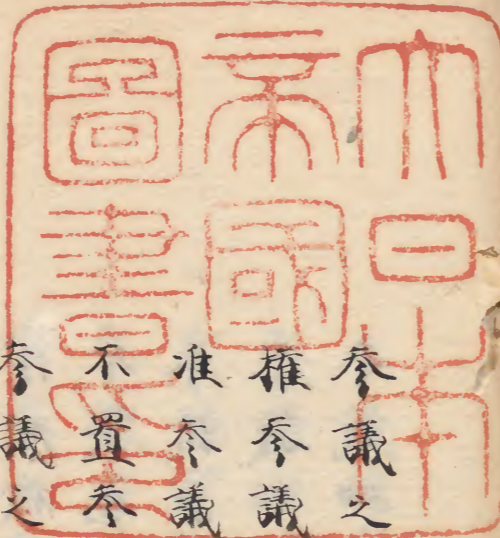 大日本
帝國
圖書印
參議之
權參議
准參議
不置參
參議之